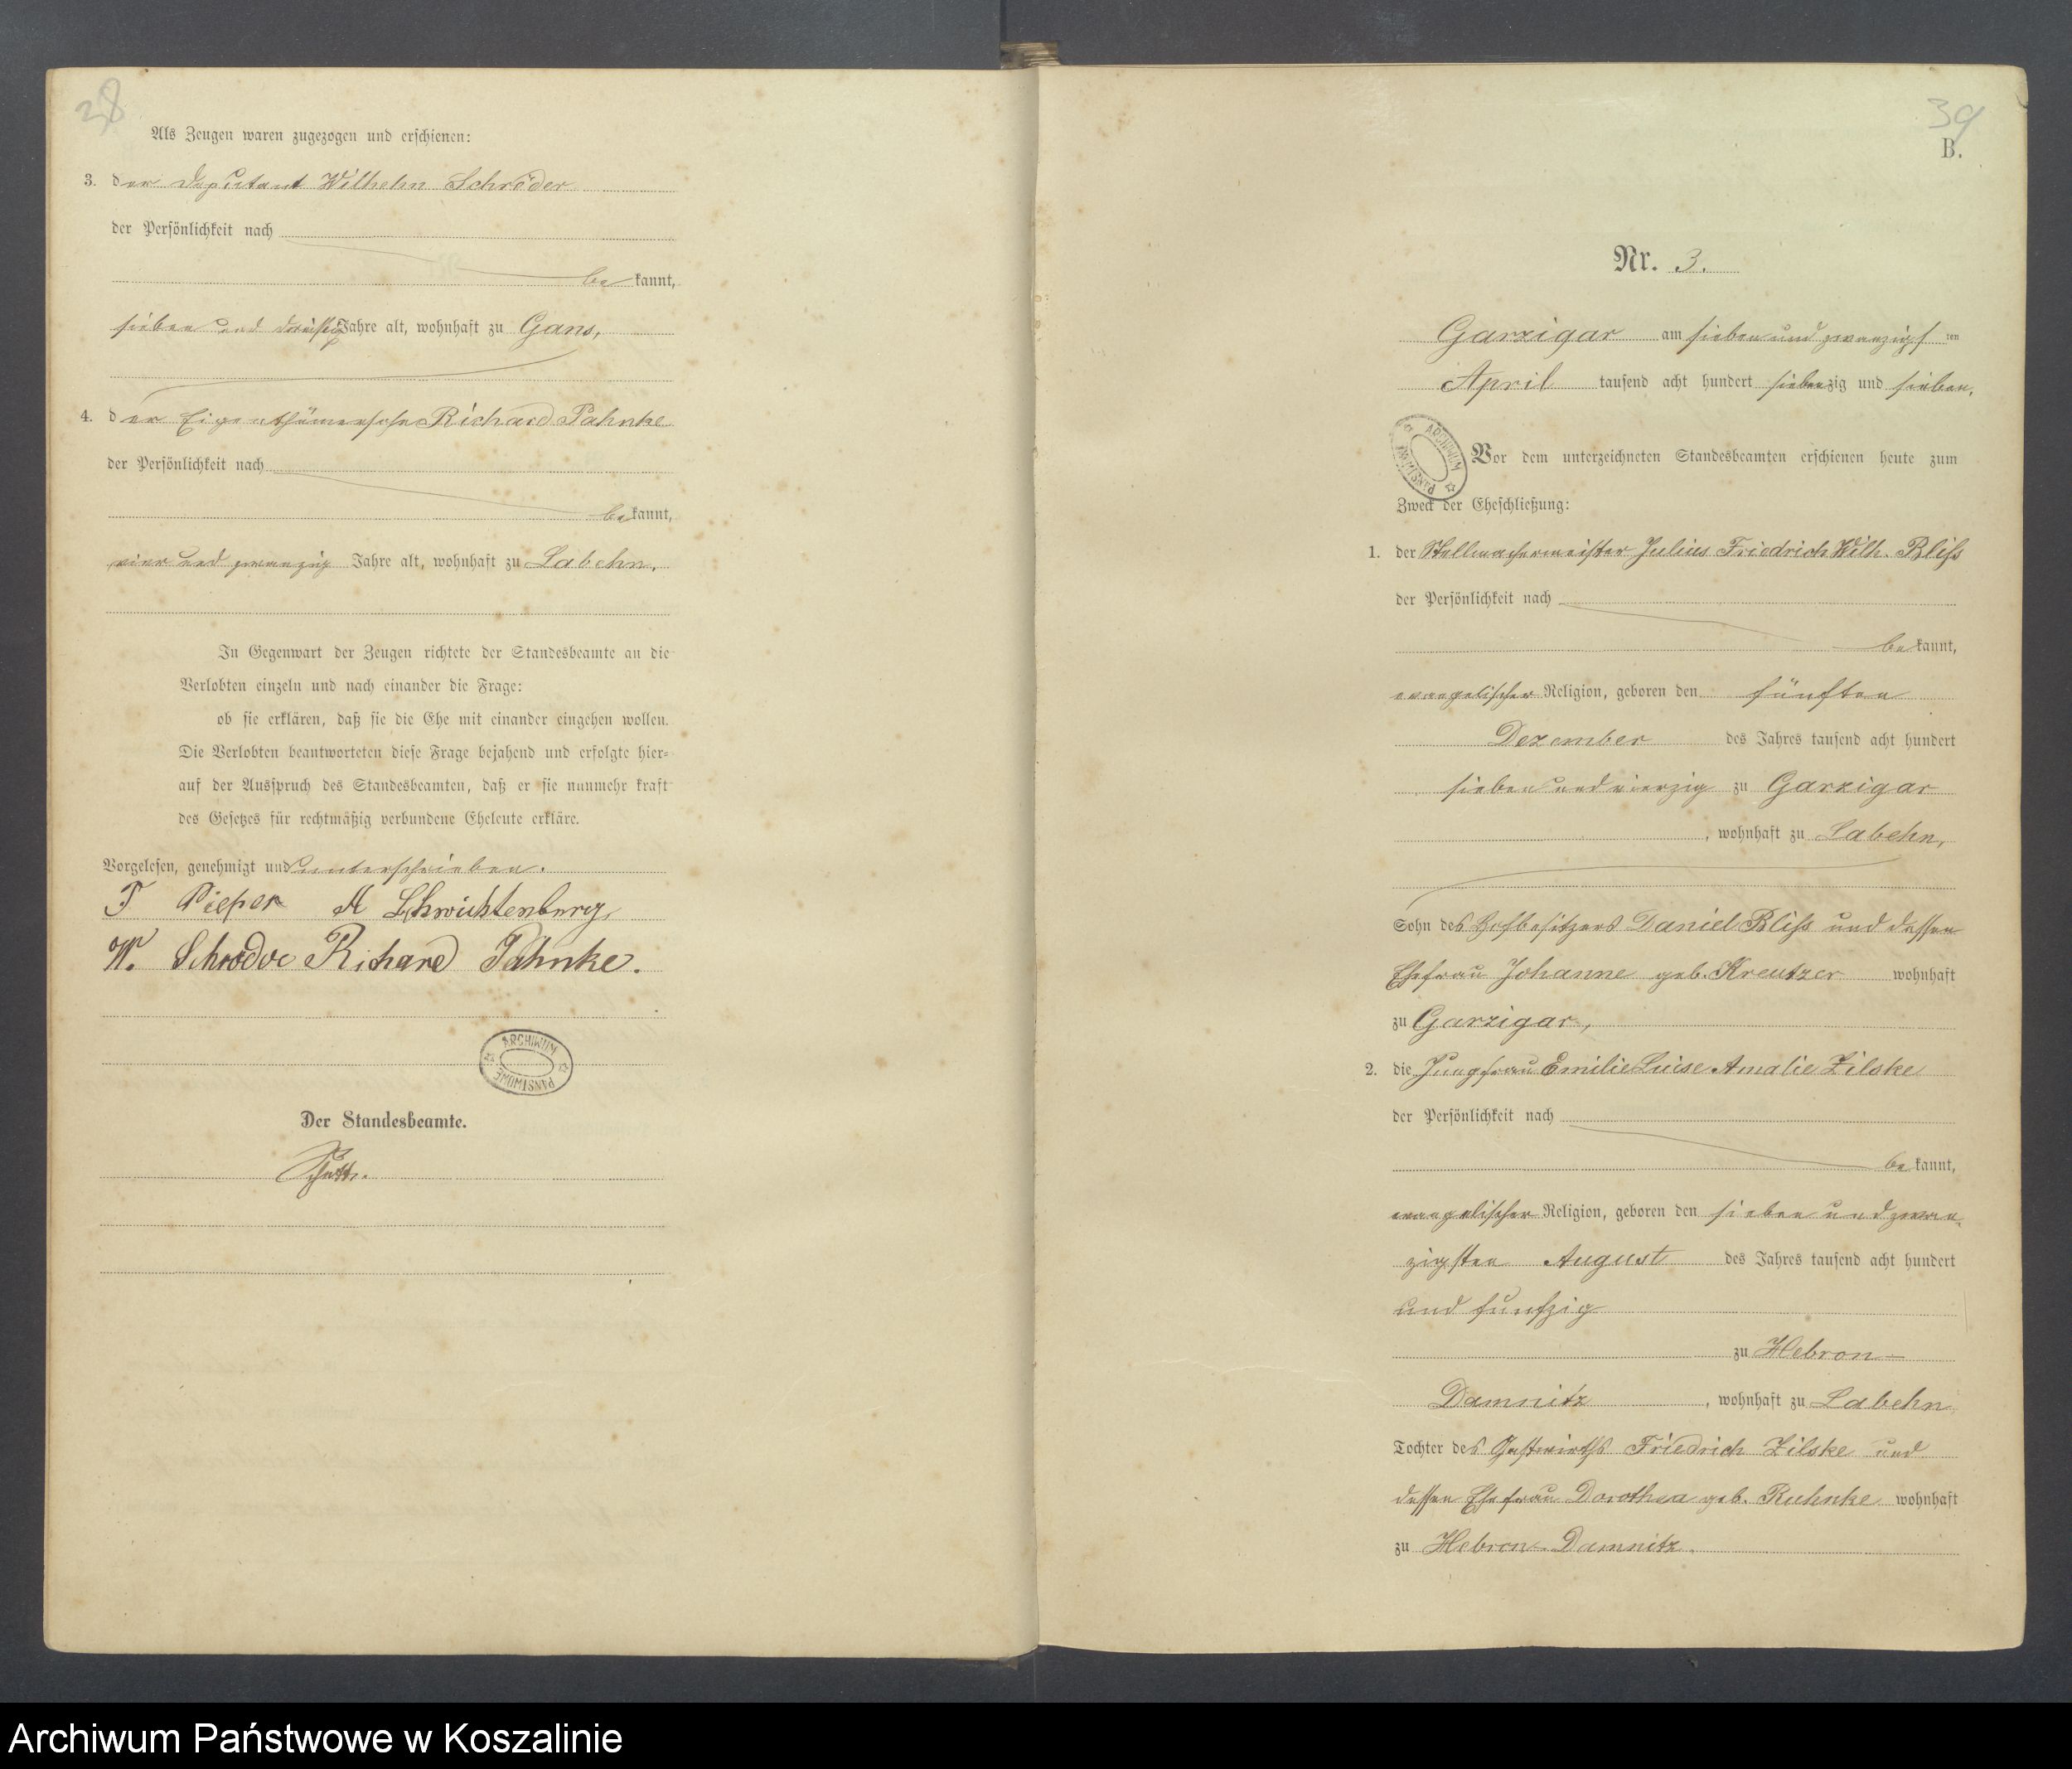 38
Als Zeugen waren zugezogen und erschienen:
3. der Deputant Wilhelm Schröder
der Persönlichkeit nach
be kannt,
sieben und dreißig Jahre alt, wohnhaft zu Gans,
4. der Eigenthümersohn Richard Pahnke
der Persönlichkeit nach
be kannt,
vier und zwanzig Jahre alt, wohnhaft zu Labehn,
In Gegenwart der Zeugen richtete der Standesbeamte an die
Verlobten einzeln und nach einander die Frage:
ob sie erklären, daß sie die Ehe mit einander eingehen wollen.
Die Verlobten beantworteten diese Frage bejahend und erfolgte hier-
auf der Ausspruch des Standesbeamten, daß er sie nunmehr kraft
des Gesetzes für rechtmäßig verbundene Eheleute erkläre.
Vorgelesen, genehmigt und unterschrieben.
F Pieper A Schwichtenberg
W. Schröder Richard Pahnke.
ARCHIWUM PAŃSTWOWE
Der Standesbeamte.
39
B.
Nr. 3.
Garzigar am sieben und zwanzigsten
April tausend acht hundert siebenzig und sieben.
ARCHIWUM PAŃSTWOWE
Vor dem unterzeichneten Standesbeamten erschienen heute zum
Zweck der Eheschließung:
1. der Stellmachermeister Julius Friedrich Wilh. Bliss
der Persönlichkeit nach
be kannt,
evangelischer Religion, geboren den fünften
Dezember des Jahres tausend acht hundert
sieben und vierzig zu Garzigar
, wohnhaft zu Labehn,
Sohn des Hofbesitzers Daniel Bliss und dessen
Ehefrau Johanne geb. Kreutzer wohnhaft
zu Garzigar,
2. die Jungfrau Emilie Luise Amalie Zilske
der Persönlichkeit nach
be kannt,
evangelischer Religion, geboren den sieben und zwan-
zigsten August des Jahres tausend acht hundert
und funfzig
zu Hebron-
Damnitz , wohnhaft zu Labehn
Tochter des Gastwirths Friedrich Zilske und
dessen Ehefrau Dorothea geb. Ruhnke wohnhaft
zu Hebron-Damnitz.
Archiwum Państwowe w Koszalinie